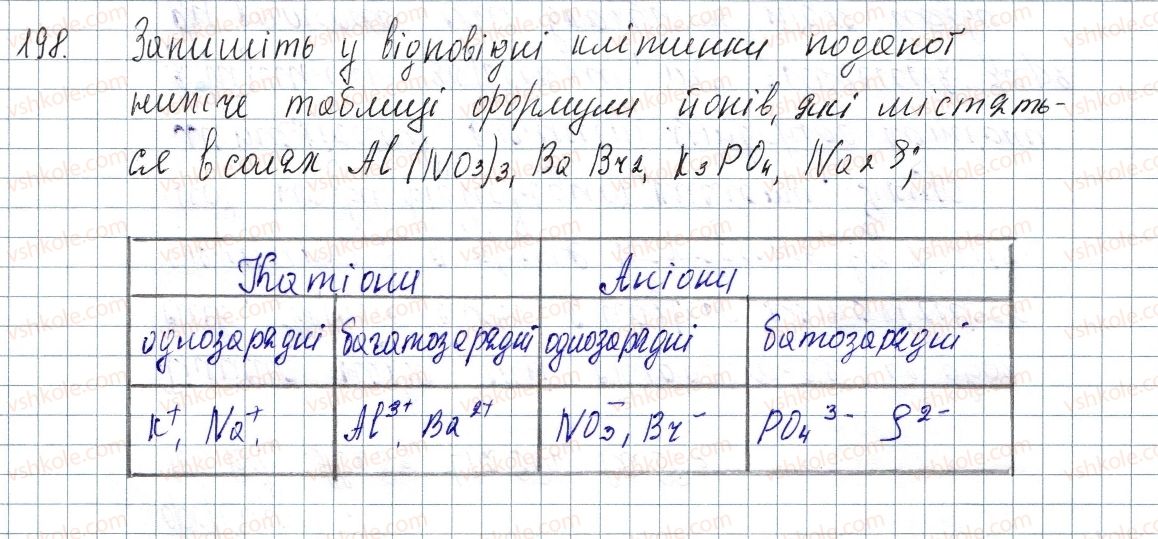 198. Запишіть у відповідні клітинки поданої
нижче таблиці формули йонів, які містять-
ся в солях Al(NO3)3, BaBr2, K3PO4, Na2S;
Катіони Аніони
однозарядні багатозарядні однозарядні батозарядні
K⁺, Na⁺. Al³⁺, Ba²⁺ NO₃⁻, Br⁻ PO₄³⁻ S²⁻